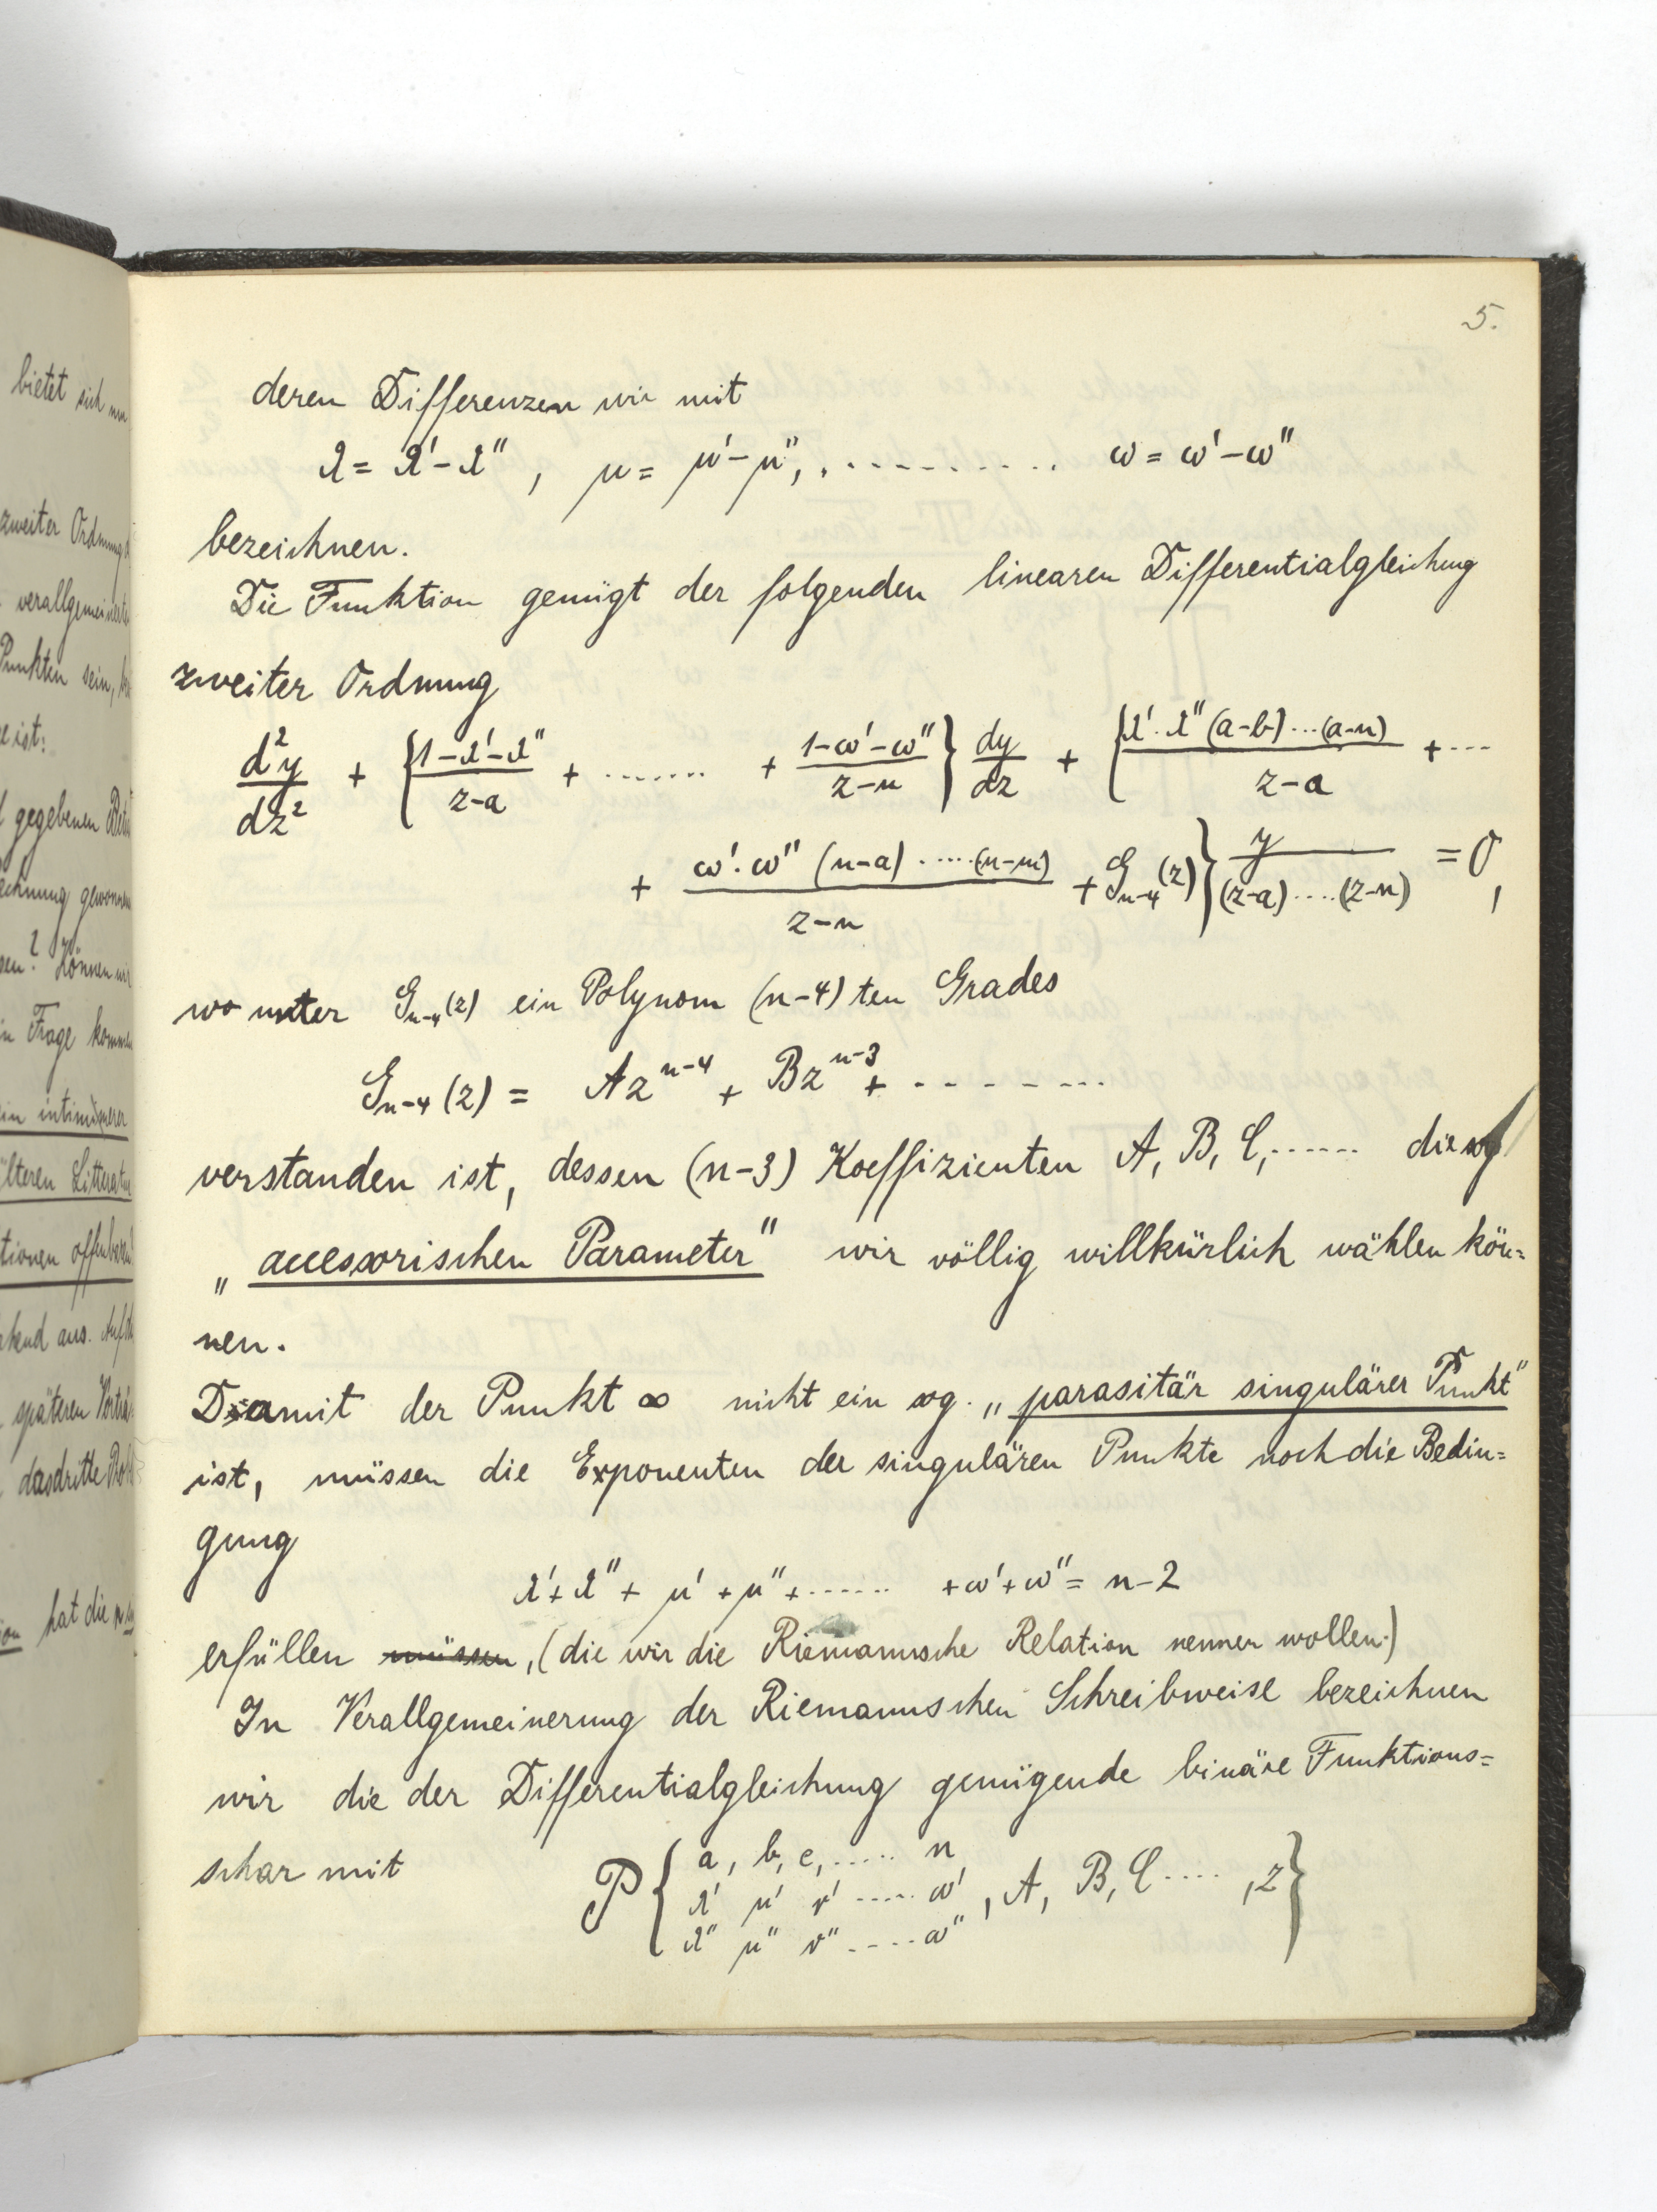 bietet sich nun
zweiter Ordnung
verallgemeinerte
Punkten sein,
ist:
gegebenen
gewonnen
? Können wir
in Frage kommen
ein intimerer
älteren Litteratur
späteren
das dritte
hat die n
5.
deren Differenzen wir mit
λ = λ' - λ'' , μ = μ' - μ'', .......... ω = ω' - ω''
bezeichnen.
Die Funktion genügt der folgenden linearen Differentialgleichung
zweiter Ordnung
d²y/dz² + {(1-λ'-λ'')/(z-a) + ....... + (1-ω'-ω'')/(z-n)} dy/dz + {λ'.λ''(a-b)...(a-n)/(z-a) + ...
+ ω'.ω''(n-a).....(n-m)/(z-n) + G_{n-4}(z)} y/((z-a)....(z-n)) = 0,
wo unter G_{n-4}(z) ein Polynom (n-4)ten Grades
G_{n-4}(z) = Az^{n-4} + Bz^{n-3} + ........
verstanden ist, dessen (n-3) Koeffizienten A, B, C,...... die sog
„accessorischen Parameter" wir völlig willkürlich wählen kön=
nen.
Damit der Punkt ∞ nicht ein sog. „parasitär singulärer Punkt"
ist, müssen die Exponenten der singulären Punkte noch die Bedin=
gung
λ'+λ''+ μ'+μ''+...... +ω'+ω''= n-2
erfüllen müssen, (die wir die Riemannsche Relation nennen wollen.)
In Verallgemeinerung der Riemannschen Schreibweise bezeichnen
wir die der Differentialgleichung genügende binäre Funktions=
schar mit
P { a, b, c, ..... n
λ' μ' ν' ..... ω' , A, B, C .... , z }
λ'' μ'' ν'' ..... ω''